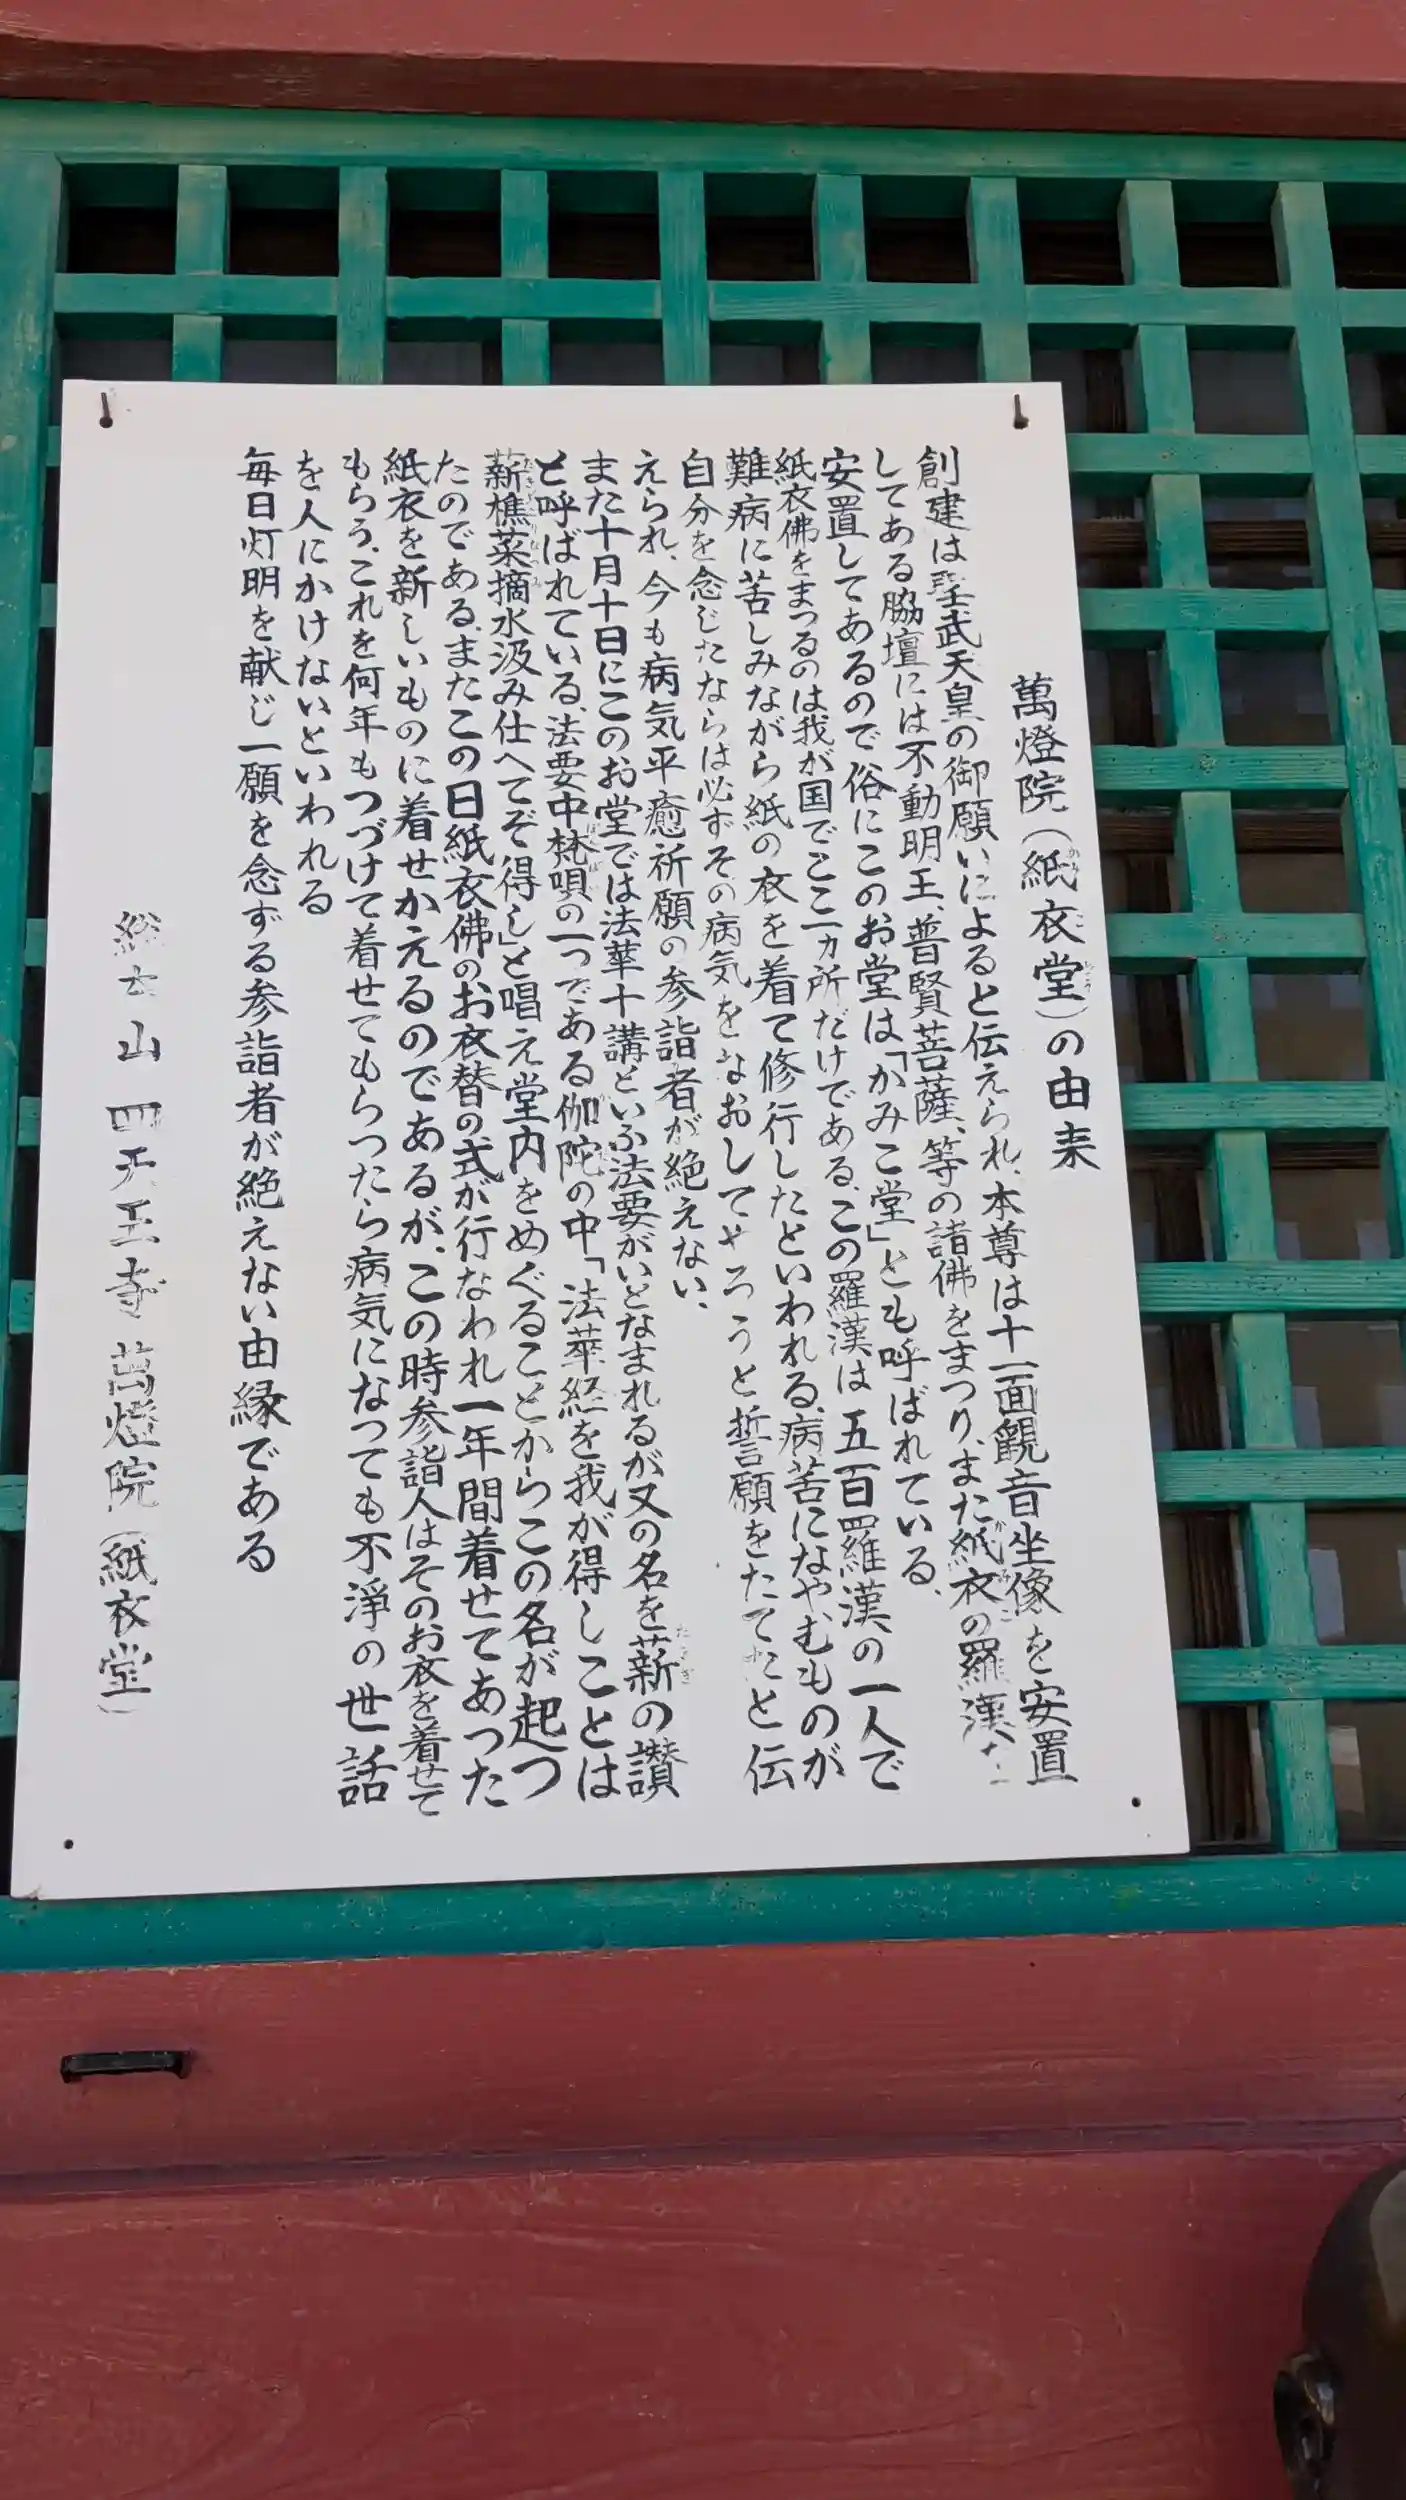 萬燈院(紙衣堂)の由来
創建は聖武天皇の御願いによると伝えられ、本尊は十一面観音坐像を安置
してある脇壇には不動明王、普賢菩薩、等の諸佛をまつり、また紙衣の羅漢
安置してあるので俗にこのお堂は「かみこ堂」とも呼ばれている、
紙衣佛をまつるのは我が国でここ一ヵ所だけである、この羅漢は五百羅漢の一人で
難病に苦しみながら紙の衣を着て修行したといわれる、病苦になやむものが
自分を念じたならは必ずその病気をなおしてやろうと誓願をたてたと伝
えられ、今も病気平癒祈願の参詣者が絶えない、
また十月十日にこのお堂では法華十講といふ法要がいとなまれるが又の名を薪の讃
と呼ばれている、法要中梵唄の一つである伽陀の中「法華経を我が得しことは
薪樵菜摘水汲み仕へてぞ得し」と唱え堂内をめぐることからこの名が起つ
たのである、またこの日紙衣佛のお衣替の式が行なわれ一年間着せてあった
紙衣を新しいものに着せかえるのであるが、この時参詣人はそのお衣を着せて
もらう、これを何年もつづけて着せてもらつたら病気になつても不淨の世話
を人にかけないといわれる
毎日灯明を献じ一願を念ずる参詣者が絶えない由縁である
山 四天王寺 萬燈院(紙衣堂)